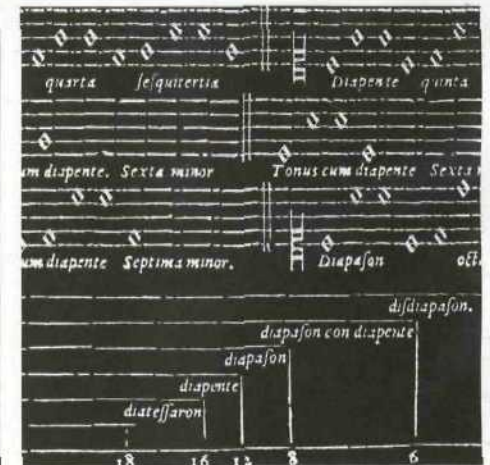 quarta ſeſquitertia Diapente quinta
um diapente. Sexta minor Tonus cum diapente Sexta
um diapente Septima minor. Diapaſon oct
diſdiapaſon.
diapaſon con diapente
diapaſon
diapente
diateſſaron
18 16 12 8 6